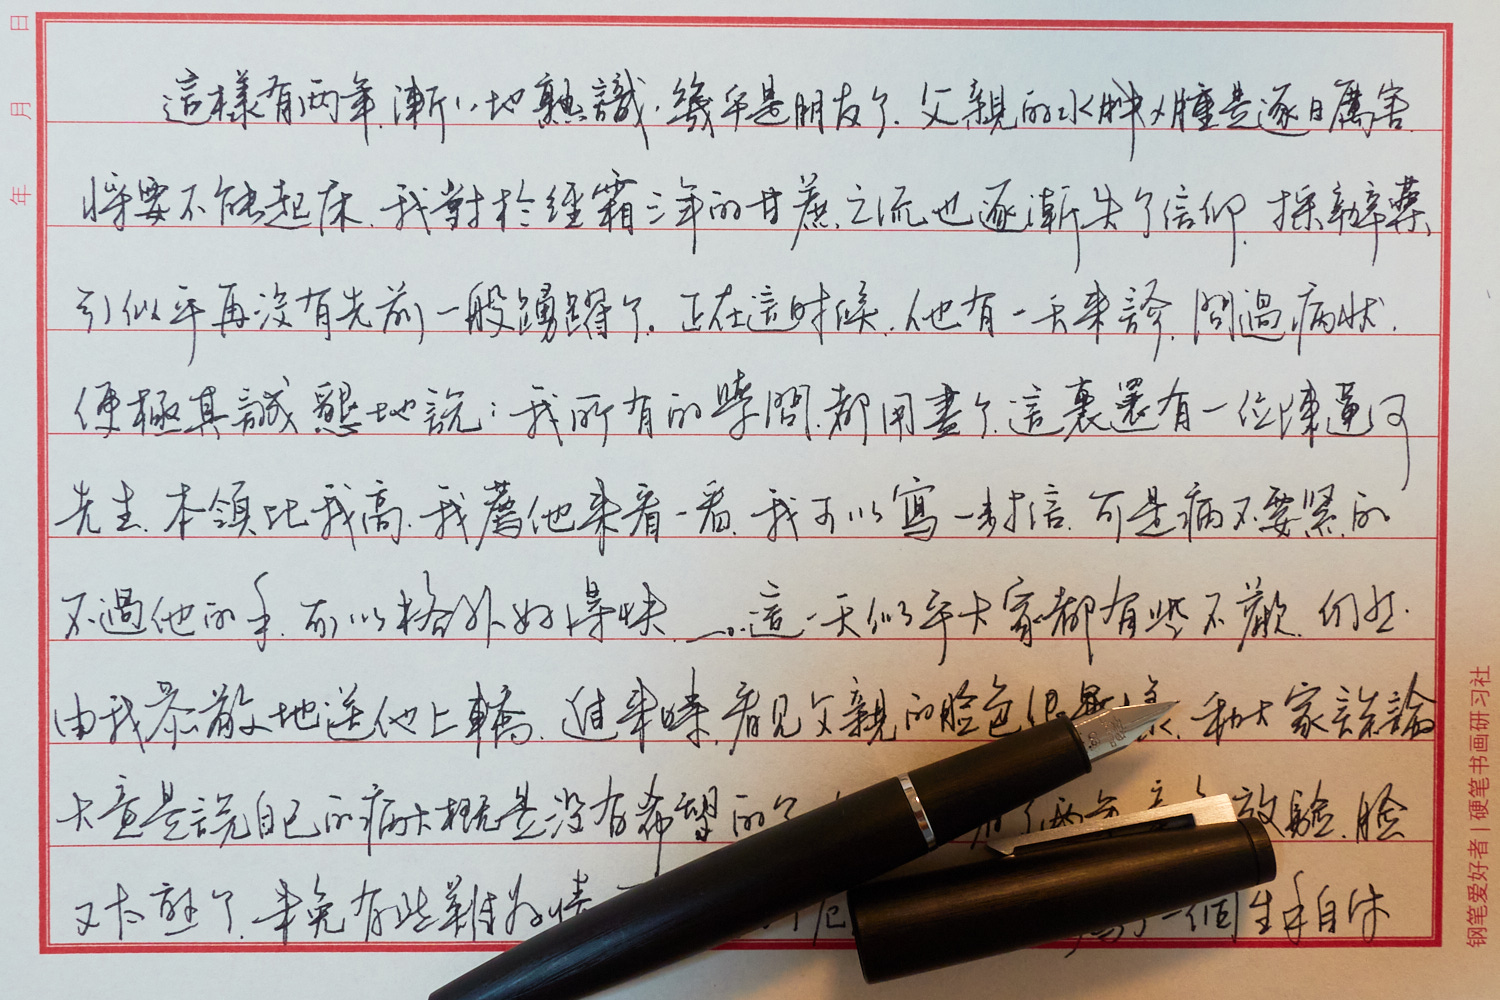 日
月
年
這樣有两年,漸漸地熟識,幾乎是朋友了。父親的水腫是逐日厲害,
將要不能起床,我對於經霜三年的甘蔗之流也逐漸失了信仰,採辦藥
引似乎再没有先前一般踴躍了。正在這时候,他有一天来診,問過病状,
便極其誠懇地說:我所有的學問,都用盡了,這裏還有一位陳蓮河
先生,本領比我高,我薦他来看一看,我可以寫一封信,可是病不要緊的
不過他的手,可以格外好得快……這一天似乎大家都有些不歡,仍然
由我恭敬地送他上轎,進来時,看見父親的脸色很異樣,和大家談論
大意是說自己的病大概是没有希望的了 看了两年 效驗,脸
又太熟了,未免有些難为情 一個生手自代
钢笔爱好者|硬笔书画研习社